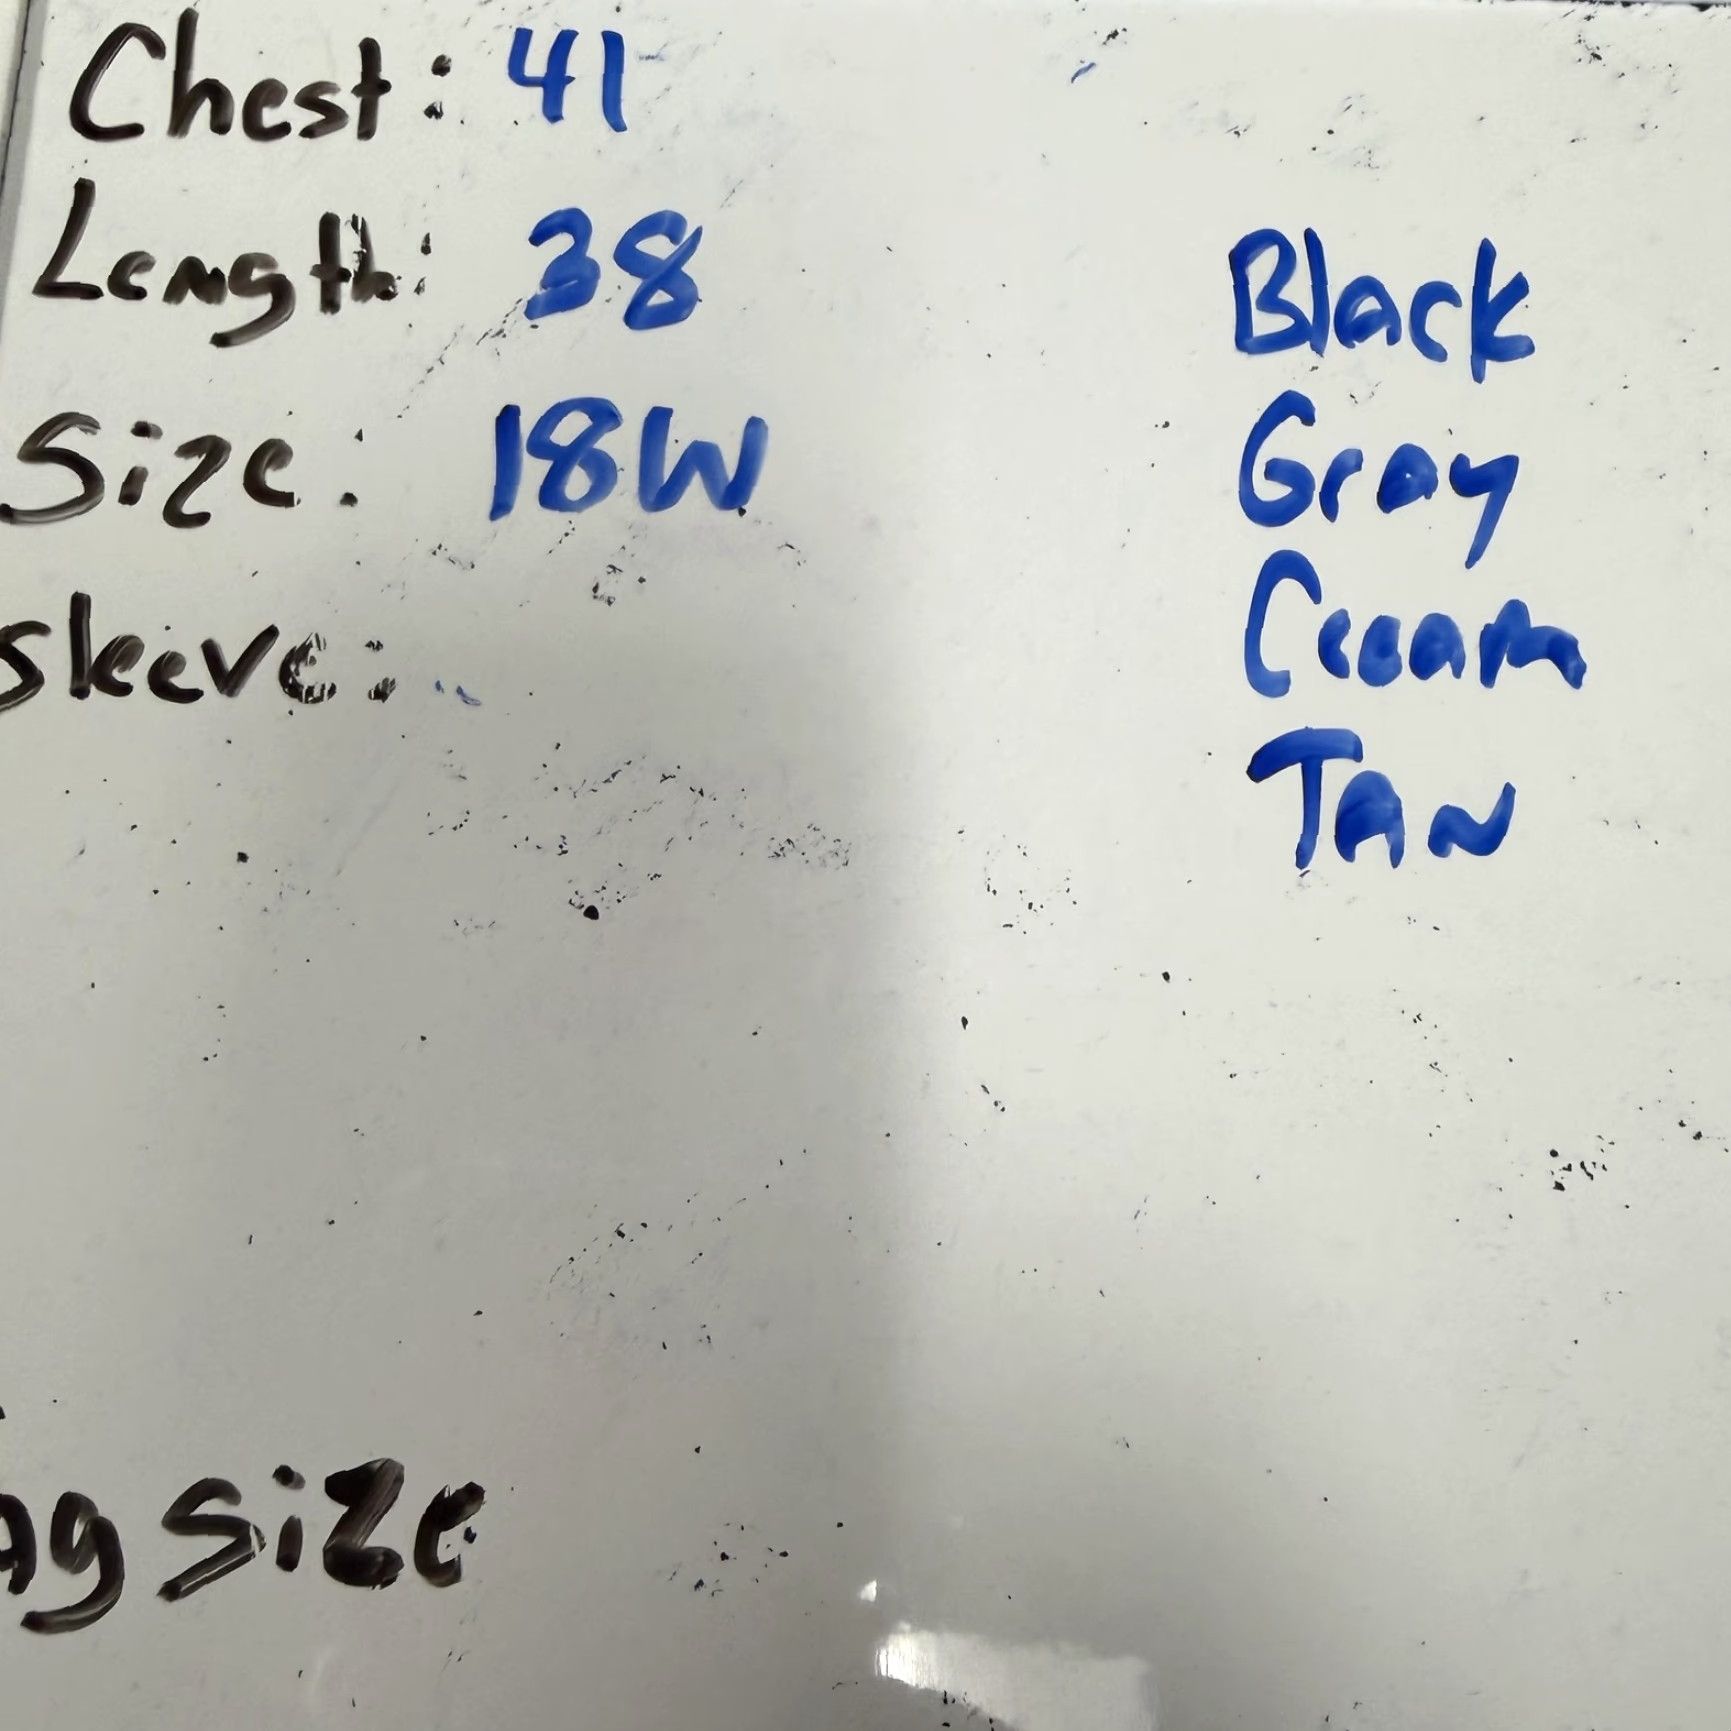 Chest: 41
Length: 38
Size: 18W
sleeve:
Black
Gray
Cream
TAN
ag size